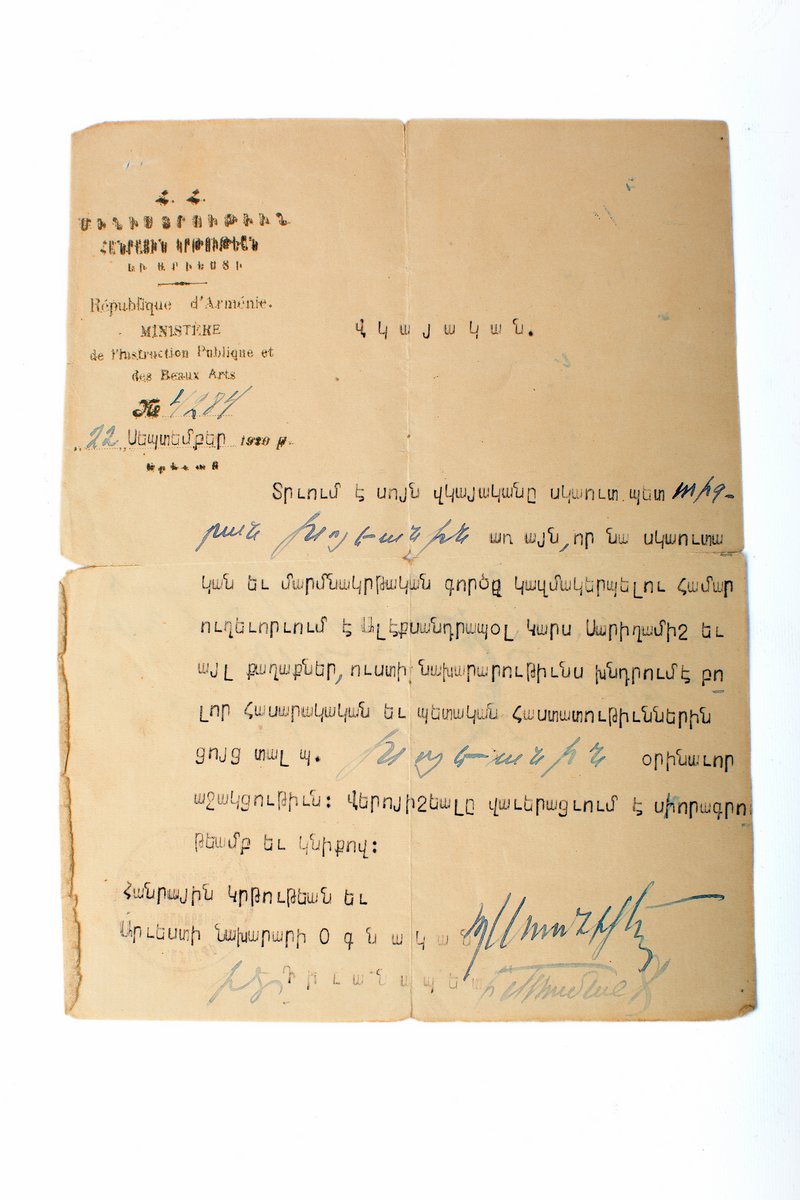 Հ. Հ.
ՄԻՆԻՍՏՐՈՒԹԻՒՆ
ՀԱՆՐԱՅԻՆ ԿՐԹՈՒԹԵԱՆ
ԵՒ ԱՐՒԵՍՏԻ
République d'Arménie.
MINISTÈRE
de l'Instruction Publique et
des Beaux Arts
№ 4284
„22„ Սեպտեմբեր 1920 թ.
Երեւան
Վկայական.
Տրւում է սոյն վկայականը սկաուտ.պետ Տիգ-
րան Խոյեանին առ այն,որ նա սկաուտա
կան եւ մարմնակրթական գործը կազմակերպելու Համար
ուղեւորւում է Ալէքսանդրապօլ Կարս Սարիղամիշ եւ
այլ քաղաքներ, ուստի նախարարութիւնս խնդրումէ բո
լոր Հասարակական եւ պետական Հաստատութիւններին
ցոյց տալ պ. Խոյեանին օրինաւոր
աջակցութիւն: Վերոյիշեալը վաւերացւում է ստորագրու
թեամբ եւ կնիքով:
Հանրային Կրթութեան եւ
Արւեստի նախարարի Օգնական
Դիւանապետ